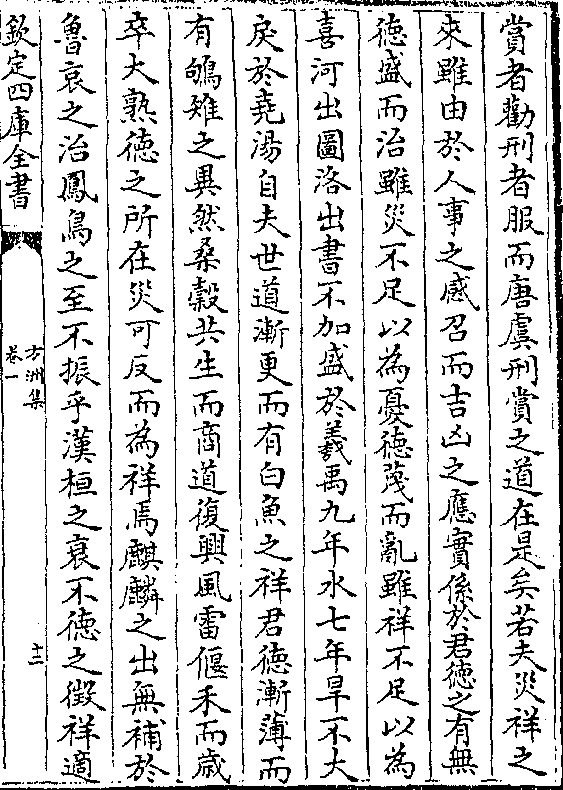 賞者勸刑者服而唐虞刑賞之道在是矣若夫災祥之
來雖由於人事之感召而吉凶之應實係於君徳之有無
徳盛而治雖災不足以為憂徳蔑而亂雖祥不足以為
喜河出圖洛出書不加盛於羲禹九年水七年旱不大
戾於堯湯自夫世道漸更而有白魚之祥君徳漸薄而
有鴝雉之異然桑榖共生而商道復興風雷偃禾而歳
卒大熟徳之所在災可反而為祥焉麒麟之出無補於
魯哀之治鳳鳥之至不振乎漢桓之衰不徳之徴祥適
欽定四庫全書
方洲集
卷一
十二